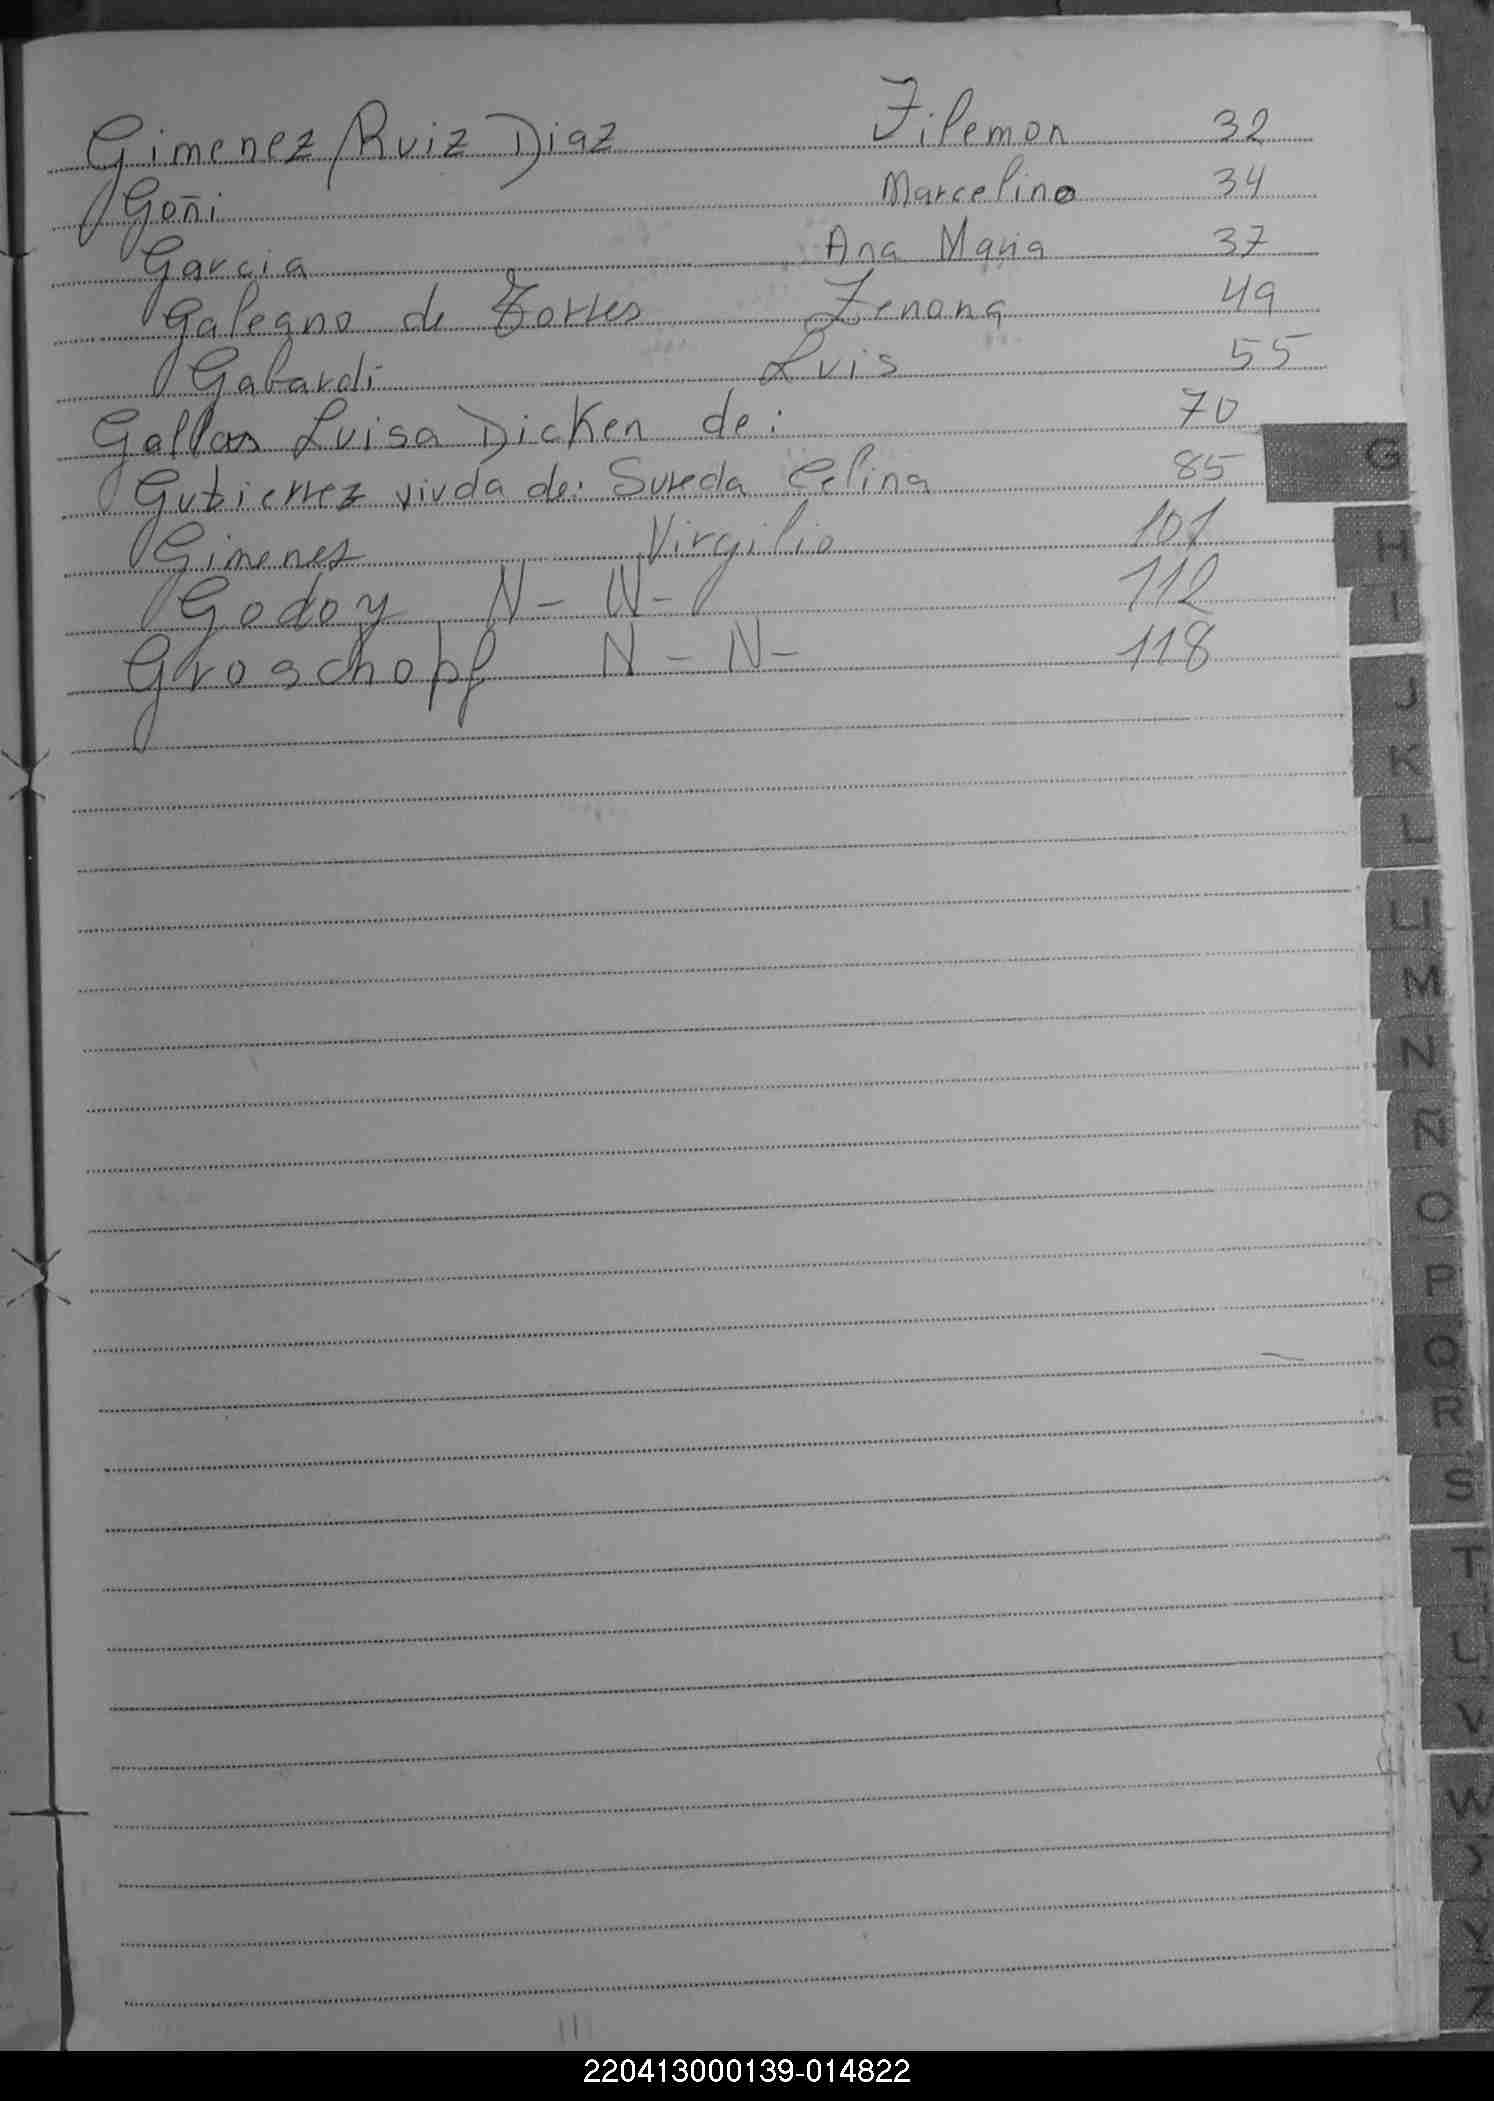 Gimenez Ruiz Diaz Filemon 32
Goñi Marcelino 34
Garcia Ana Maria 37
Galeano de Torres Zenona 49
Gabardi Luis 55
Gallas Luisa Dicken de: 70
Gutierrez viuda de: Sureda Celina 85
Gimenez Virgilio 101
Godoy N- N- 112
Groschopf N- N- 118
G
H
I
J
K
L
LL
M
N
Ñ
O
P
Q
R
S
T
U
V
W
X
Y
Z
220413000139-014822